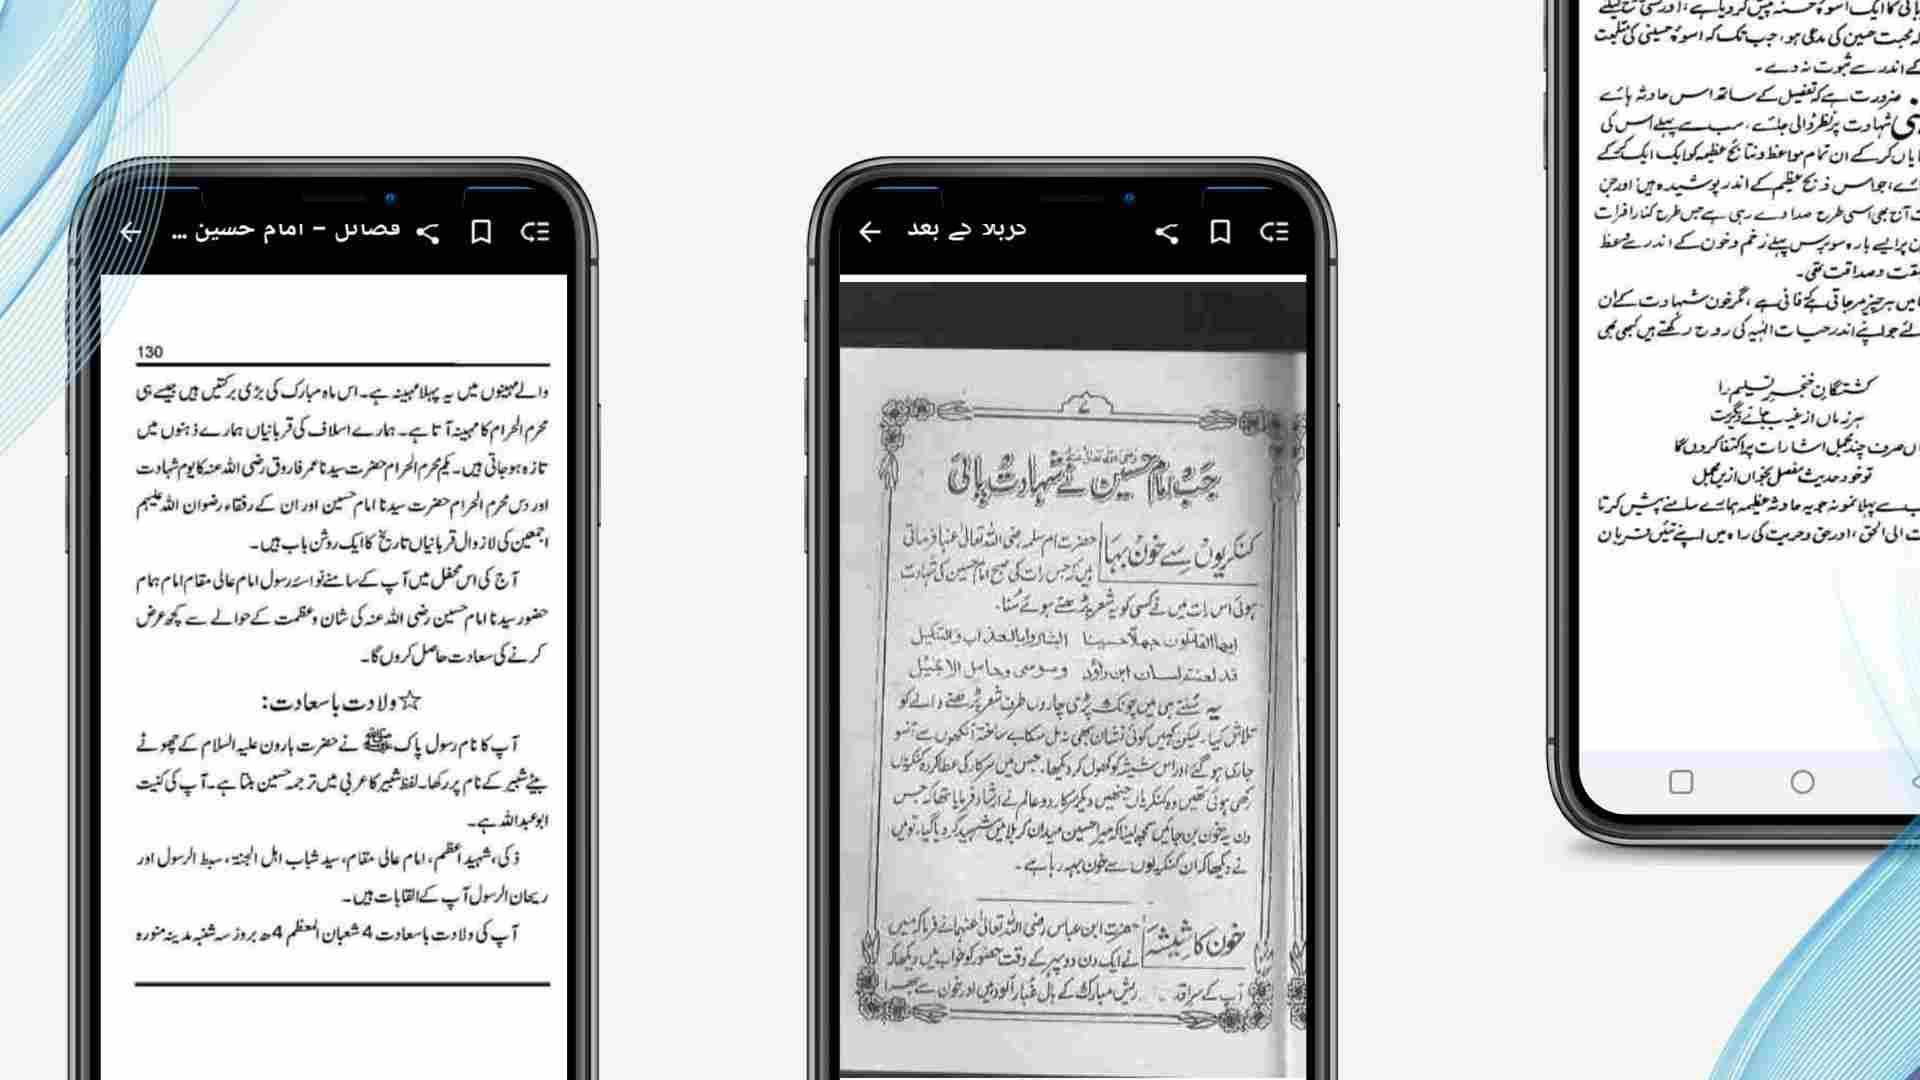 فضائل – امام حسین ...
130
والے مہینوں میں یہ پہلا مہینہ ہے۔ اس ماہ مبارک کی بڑی برکتیں ہیں جیسے ہی
محرم الحرام کا مہینہ آتا ہے۔ ہمارے اسلاف کی قربانیاں ہمارے ذہنوں میں
تازہ ہو جاتی ہیں۔ یکم محرم الحرام حضرت سیدنا عمر فاروق رضی اللہ عنہ کا یوم شہادت
اور دس محرم الحرام حضرت سیدنا امام حسین اور ان کے رفقاء رضوان اللہ علیہم
اجمعین کی لازوال قربانیاں تاریخ کا ایک روشن باب ہیں۔
آج کی اس محفل میں آپ کے سامنے نواسۂ رسول امام عالی مقام امام ہمام
حضور سیدنا امام حسین رضی اللہ عنہ کی شان و عظمت کے حوالے سے کچھ عرض
کرنے کی سعادت حاصل کروں گا۔
☆ ولادت باسعادت:
آپ کا نام رسول پاک ﷺ نے حضرت ہارون علیہ السلام کے چھوٹے
بیٹے شبیر کے نام پر رکھا۔ لفظ شبیر کا عربی میں ترجمہ حسین بنتا ہے۔ آپ کی کنیت
ابو عبداللہ ہے۔
ذکی، شہید اعظم، امام عالی مقام، سید شباب اہل الجنۃ، سبط الرسول اور
ریحان الرسول آپ کے القابات ہیں۔
آپ کی ولادت باسعادت 4 شعبان المعظم 4ھ بروز سہ شنبہ مدینہ منورہ
کربلا کے بعد
۷
جب امام حسین نے شہادت پائی
کنکریوں سے خون بہا
حضرت ام سلمہ رضی اللہ تعالیٰ عنہا فرماتی
ہیں کہ جس رات کی صبح امام حسین کی شہادت
ہوئی اس رات میں نے کسی کو یہ شعر پڑھتے ہوئے سُنا۔
ایھا القاتلون جھلا حسینا ابشروا بالعذاب والتنکیل
قد لعنتم لسان ابن داؤد وموسی وحامل الانجیل
یہ سُنتے ہی میں چونک پڑی چاروں طرف شعر پڑھنے والے کو
تلاش کیا۔ لیکن کہیں کوئی نشان بھی نہ مل سکا بے ساختہ آنکھوں سے آنسو
جاری ہو گئے اور اس شیشہ کو کھول کر دیکھا۔ جس میں سرکار کی عطا کردہ کنکریاں
رکھی ہوئی تھیں وہ کنکریاں جنھیں دیکر سرکار دو عالم نے ارشاد فرمایا تھا کہ جس
دن یہ خون بن جائیں سمجھ لینا کہ میرا حسین میدان کربلا میں شہید کر دیا گیا۔ تو میں
نے دیکھا کہ ان کنکریوں سے خون بہہ رہا ہے۔
خون کا شیشہ
حضرت ابن عباس رضی اللہ تعالیٰ عنہما نے فرمایا کہ میں
نے ایک دن دوپہر کے وقت حضور کو خواب میں دیکھا کہ
آپ کے سر اقد ریش مبارک کے بال غبار آلود ہیں اور خون سے بھرا
کا ایک اسوۂ حسنہ پیش کر دیا ہے،
کہ محبت حسین کی مدعی ہو، جب تک کہ اسوۂ حسینی کی متابعت
کے اندر سے ثبوت نہ دے۔
ضرورت ہے کہ تفصیل کے ساتھ اس حادثہ ہائے
شہادت پر نظر ڈالی جائے، سب سے پہلے اس کی
کر کے ان تمام مواعظ و نتائج عظیمہ کو ایک ایک کر کے
جو اس ذبح عظیم کے اندر پوشیدہ ہیں اور جن
آج بھی اسی طرح صدا دے رہی ہے جس طرح کنار فرات
بارہ سو برس پہلے زخم و خون کے اندر سے وعظ
و صداقت تھی۔
میں ہر چیز مر جاتی ہے کہ فانی ہے، مگر خون شہادت کے ان
لئے جو اپنے اندر حیات الٰہیہ کی روح رکھتے ہیں کبھی بھی
کشتگان خنجر تسلیم را
ہر زماں از غیب جانے دیگر است
صرف چند مجمل اشارات پر اکتفا کروں گا
تو خود حدیث مفصل بخواں ازیں مجمل
سے پہلا نمونہ جو یہ حادثہ عظیمہ ہمارے سامنے پیش کرتا
الی الحق، اور حق و حریت کی راہ میں اپنے تئیں قربان